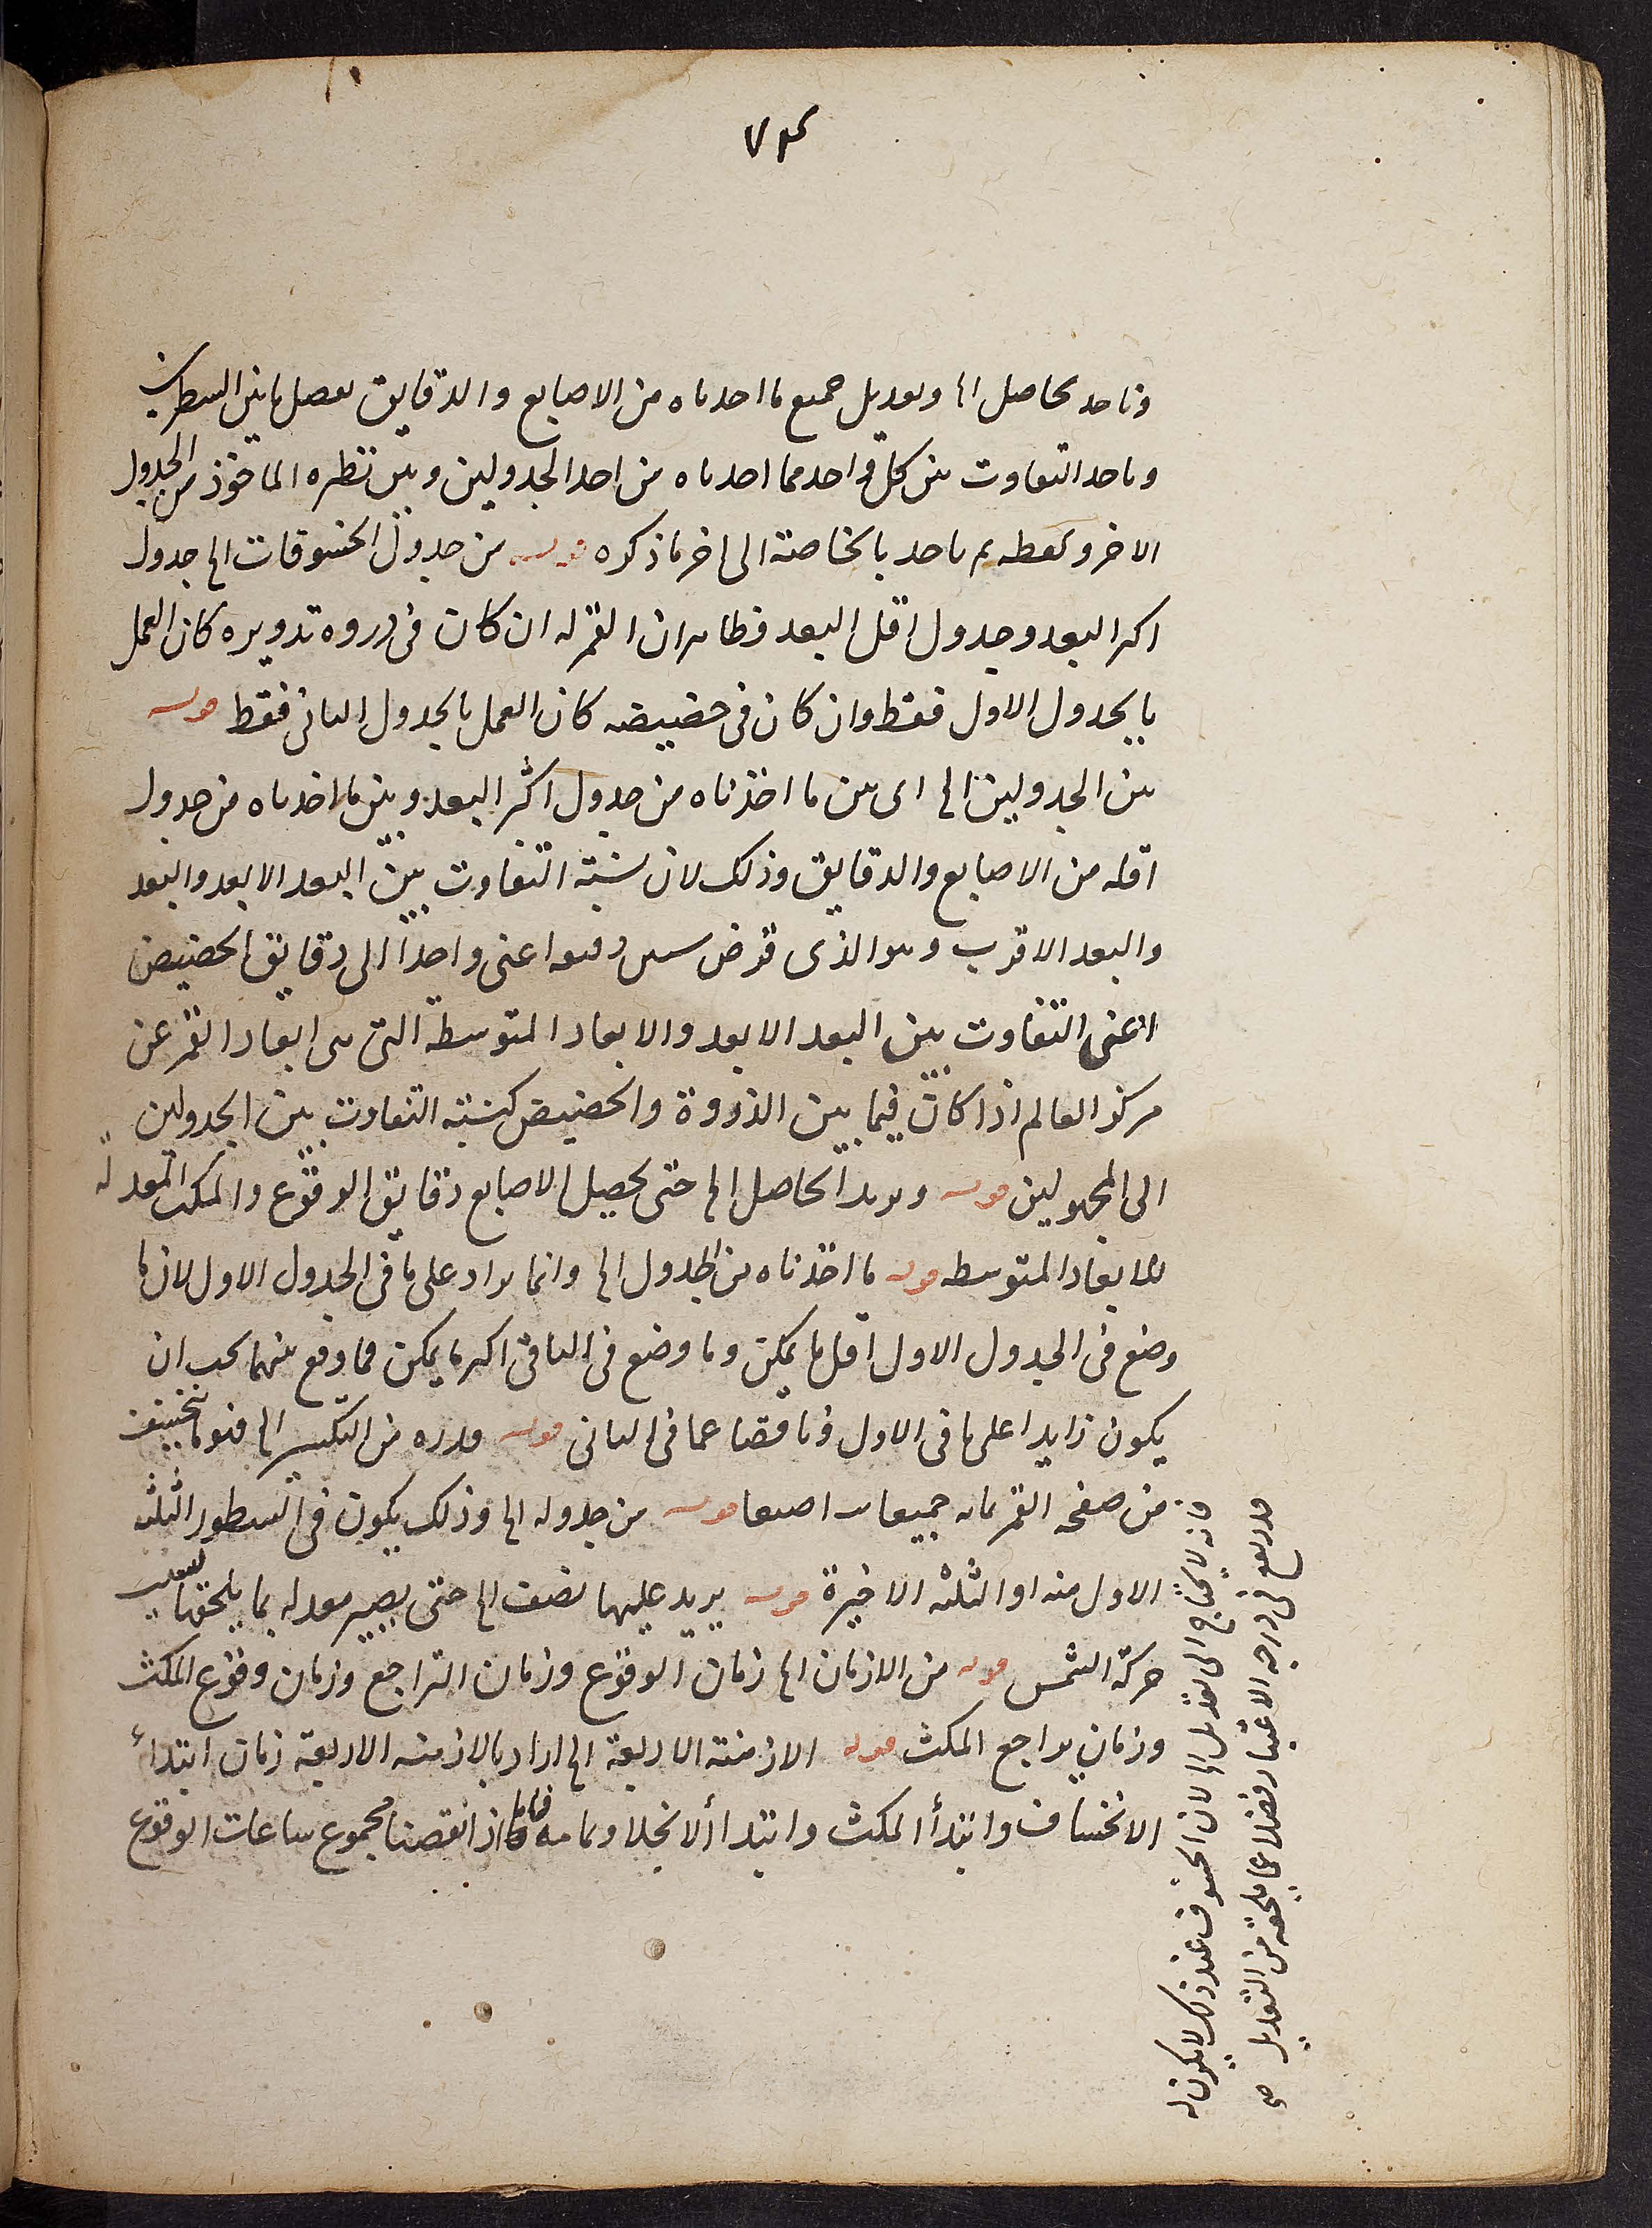 ٧٤
وناخذ بحاصل الخ وبعديل جميع ما اخذناه من الاصابع والدقايق بفضل ما بين السطرين
وناخذ التفاوت بين كل واحد مما اخذناه من احد الجدولين وبين نظيره الماخوذ من الجدول
الاخر ونحفظه ثم ناخذ بالخاصة الى اخر ما ذكره قوله من جدول الخسوفات الخ جدول
اكثر البعد وجدول اقل البعد فظاهر ان القمر له ان كان فى ذروه تدويره كان العمل
بالجدول الاول فقط وان كان فى حضيضه كان العمل بالجدول الثانى فقط قوله
بين الجدولين الخ اى بين ما اخذناه من جدول اكثر البعد وبين ما اخذناه من جدول
اقله من الاصابع والدقايق وذلك لان نسبة التفاوت بين البعد الابعد والبعد
والبعد الاقرب وهو الذى فرض ستين دقيقة اعنى واحدا الى دقايق الحضيض
اعنى التفاوت بين البعد الابعد والابعاد المتوسطة التى هى ابعاد القمر عن
مركز العالم اذا كان فيما بين الذروة والحضيض كنسبة التفاوت بين الجدولين
الى المجهولين قوله ونزيد الحاصل الخ حتى يحصل الاصابع دقايق الوقوع والمكث المعدلة
للابعاد المتوسطه قوله ما اخذناه من الجدول الخ وانما يزاد على ما فى الجدول الاول لان ما
وضع فى الجدول الاول اقل ما يمكن وما وضع فى الثانى اكثر ما يمكن فما وقع بينهما يجب ان
يكون زايدا على ما فى الاول وناقصا عما فى الثانى قوله قدره من التكسير الخ فهو ما ينخسف
من صفحه القمر بانه جميعا اصبعا قوله من جدوله الخ وذلك يكون فى السطور الثلثه
الاول منه او الثلثه الاخيرة قوله يزيد عليها نصف الخ حتى يصير معدله بما يلحقها بسبب
حركة الشمس قوله من الازمان الخ زمان الوقوع وزمان التراجع وزمان وقوع المكث
وزمان تراجع المكث قوله الازمنة الاربعة الخ اراد بالازمنه الاربعة زمان ابتداء
الانخساف وابتدأ المكث وابتدا الانجلا وتمامه فانا اذا نقصنا مجموع ساعات الوقوع
فانه لا يحتاج الى تعديل الخ لان الخسوف عند ذلك لا يكون له
قدر يقع فى درجه الاعتبار فضلا عما يلحقه من التعديل صح